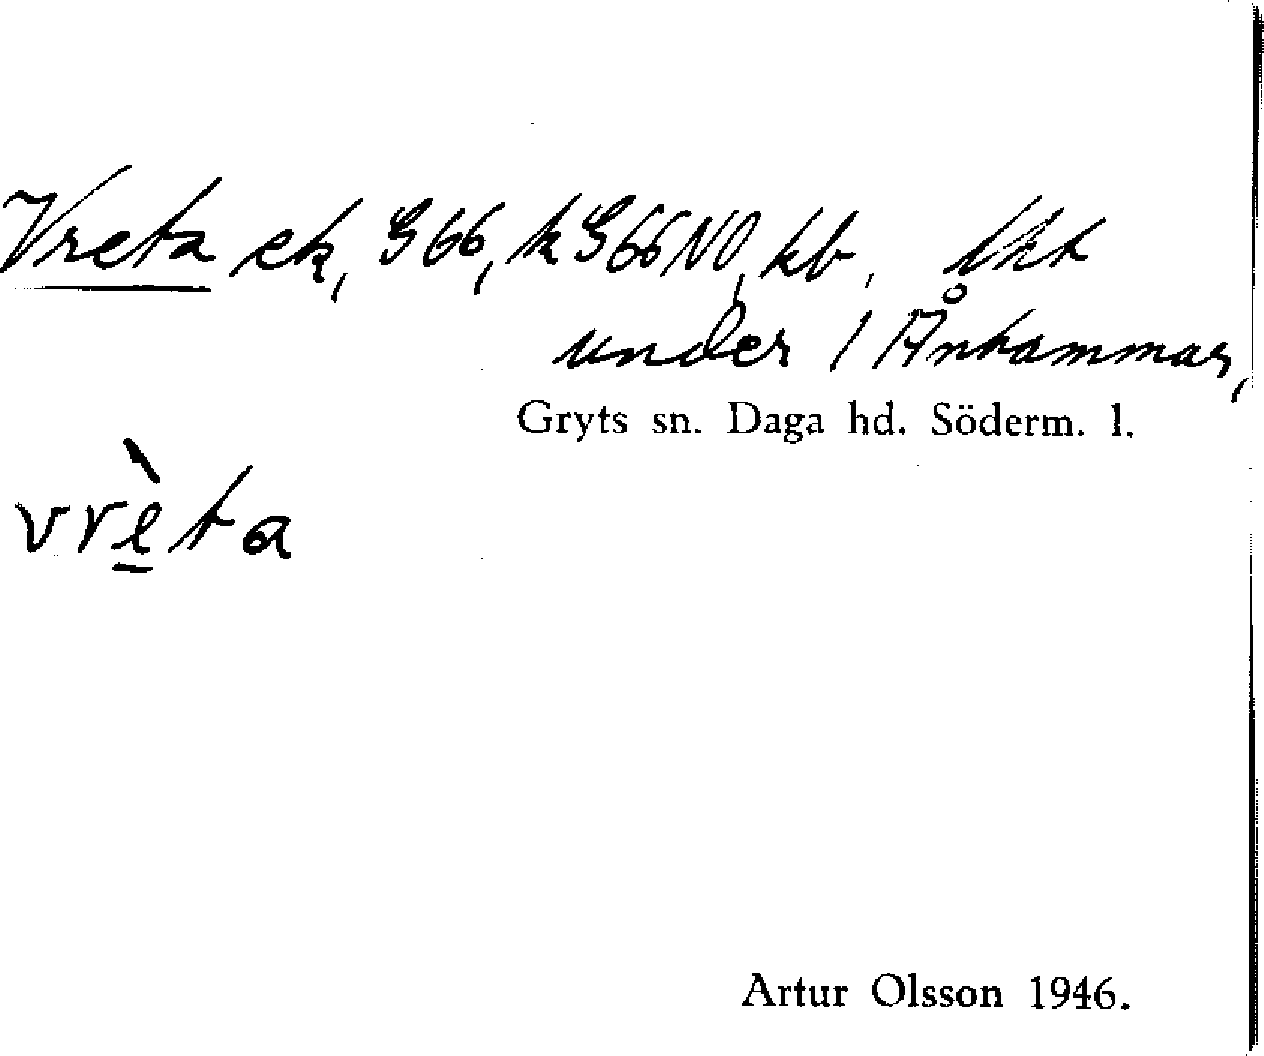 Vreta ek, G 66, k G66NO, kb, lht
under 1 Ånhammar,
Gryts sn. Daga hd. Söderm. l.
vrèta
Artur Olsson 1946.